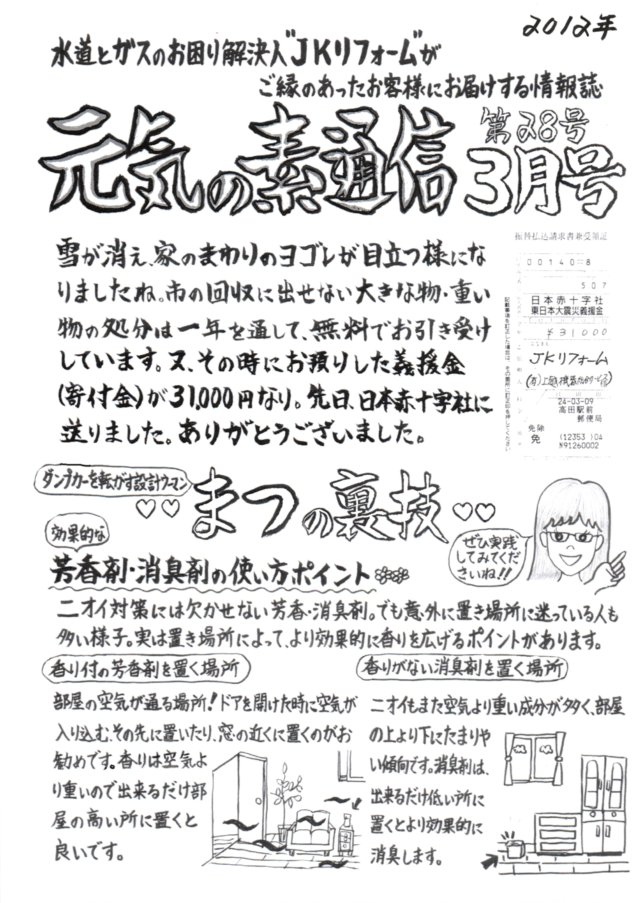 2012年
水道とガスのお困り解決人"JKリフォーム"が
ご縁のあったお客様にお届けする情報誌
元気の素通信
第28号
3月号
雪が消え、家のまわりのヨゴレが目立つ様にな
りましたね。市の回収に出せない大きな物・重い
物の処分は一年を通して、無料でお引き受け
しています。又、その時にお預りした義援金
(寄付金)が31,000円なり。先日、日本赤十字社に
送りました。ありがとうございました。
振替払込請求書兼受領証
00140 8
507
日本赤十字社
東日本大震災義援金
¥31000
JKリフォーム
24-03-09
高田駅前
郵便局
免除
免
(12353)04
N91260002
ダンプカーを転がす設計ウーマン
まつの裏技
ぜひ実践
してみてくだ
さいね!!
効果的な
芳香剤・消臭剤の使い方ポイント
ニオイ対策には欠かせない芳香・消臭剤。でも意外に置き場所に迷っている人も
多い様子。実は置き場所によって、より効果的に香りを広げるポイントがあります。
香り付の芳香剤を置く場所
部屋の空気が通る場所!ドアを開けた時に空気が
入り込む、その先に置いたり、窓の近くに置くのがお
勧めです。香りは空気よ
り重いので出来るだけ部
屋の高い所に置くと
良いです。
香りがない消臭剤を置く場所
ニオイもまた空気より重い成分が多く、部屋
の上より下にたまりや
い傾向です。消臭剤は、
出来るだけ低い所に
置くとより効果的に
消臭します。